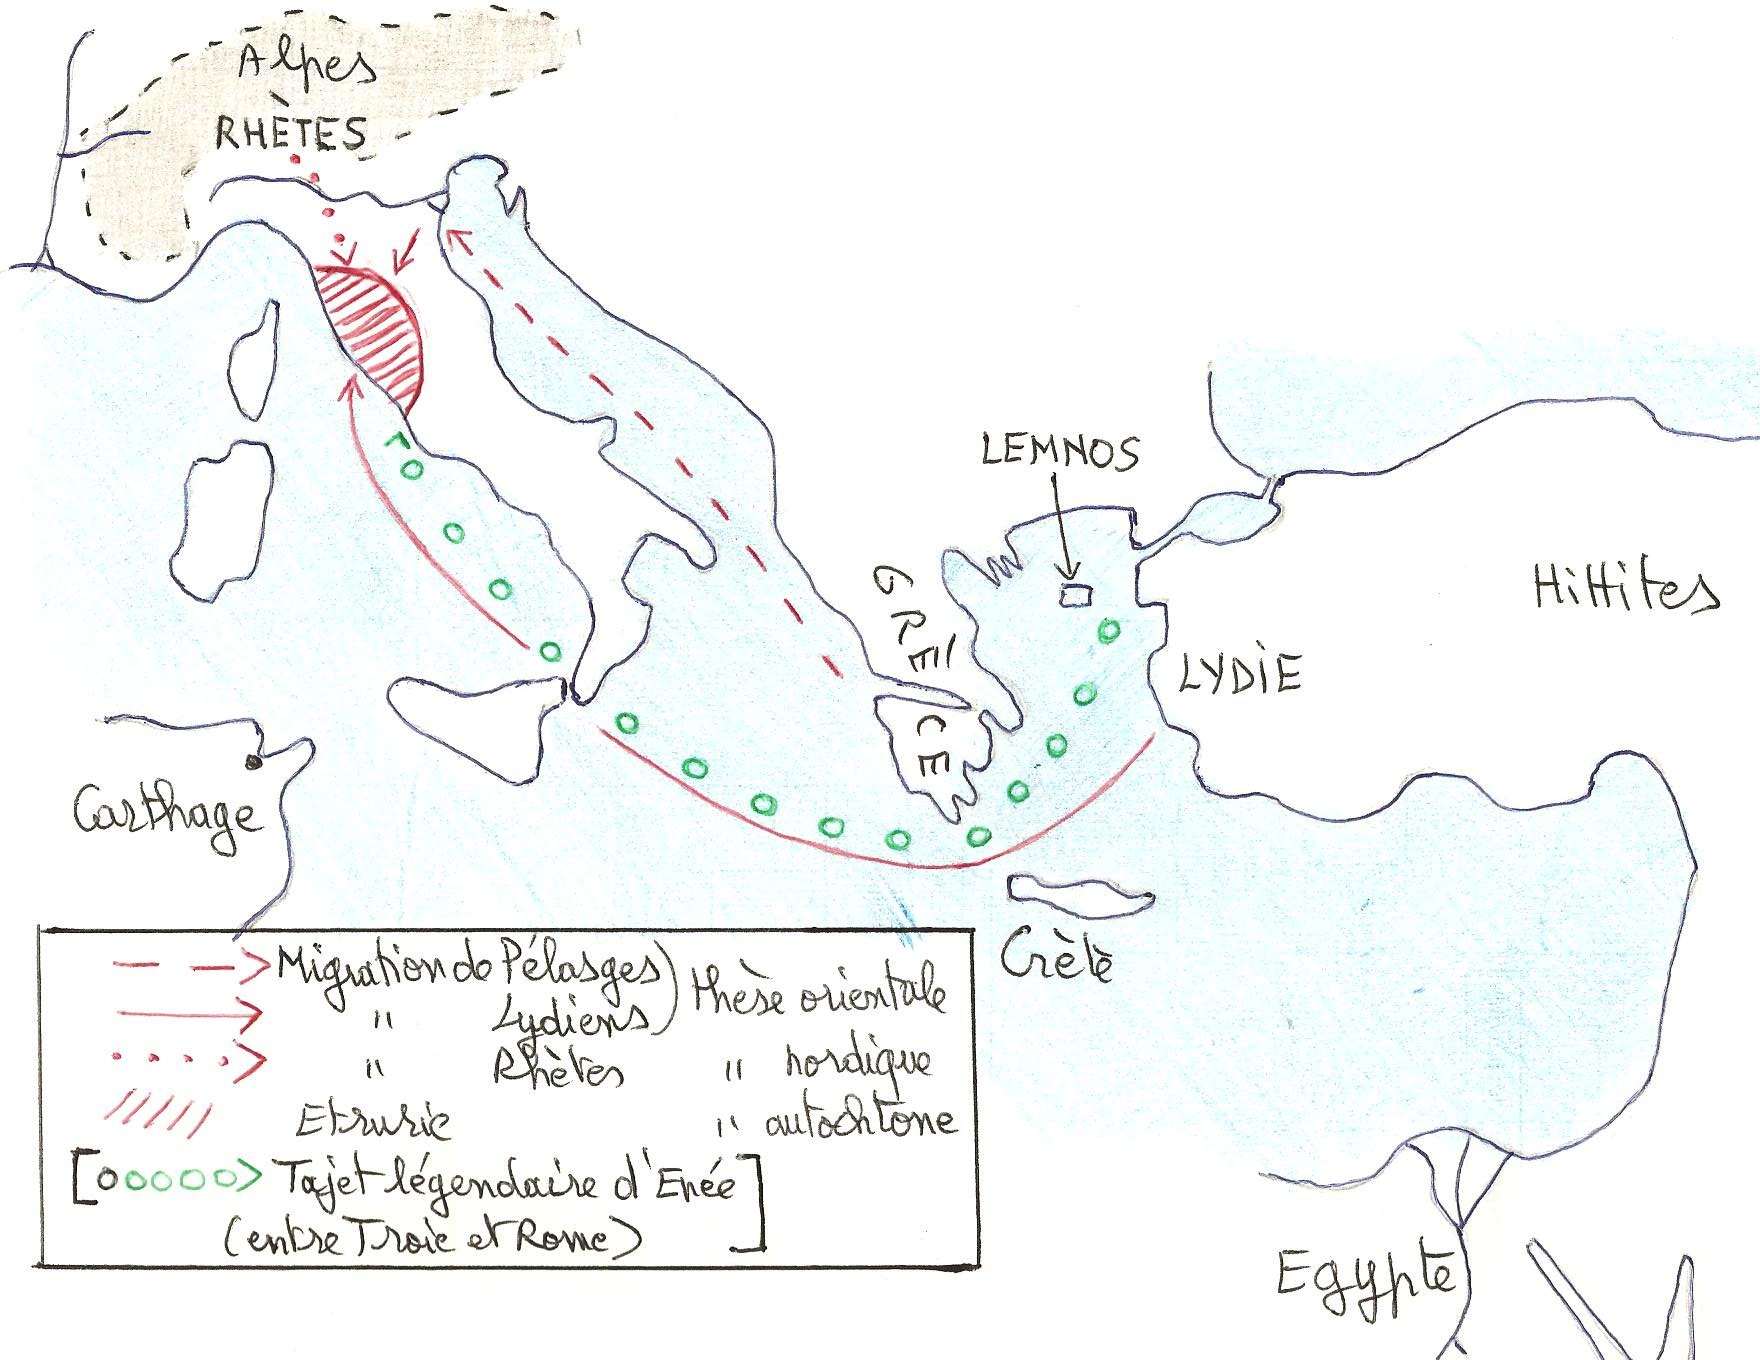 Alpes
RHÈTES
LEMNOS
GRÉCE
Hittites
LYDIE
Carthage
Crète
Migration de Pélasges) thèse orientale
" Lydiens)
" Rhètes " nordique
Etrurie " autochtone
[ Tajet légendaire d'Enée
(entre Troie et Rome) ]
Egypte